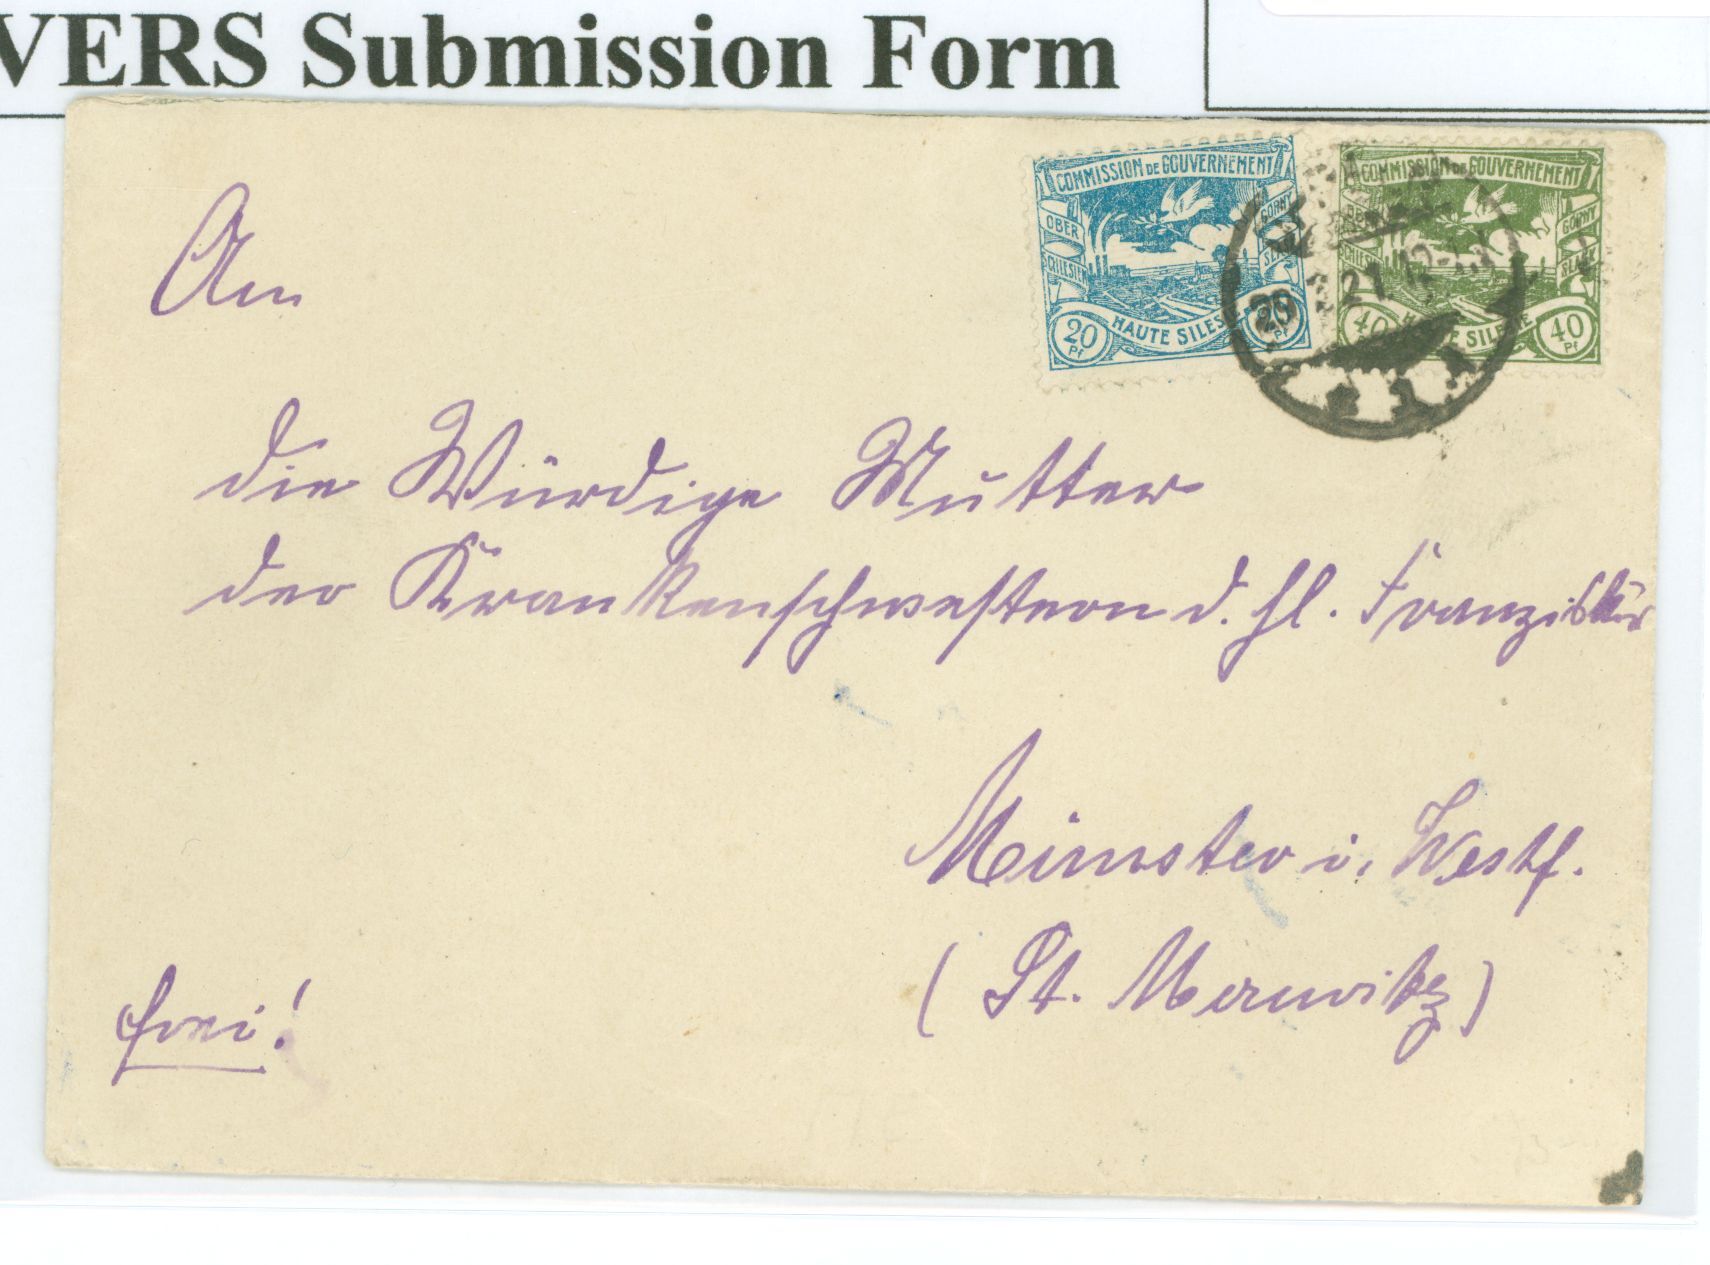 VERS Submission Form
COMMISSION DE GOUVERNEMENT
OBER SCHLESIEN
GORNY
20 Pf
HAUTE SILES
20 Pf
COMMISSION DE GOUVERNEMENT
GORNY SLASK
40
SILESIE
40 Pf
21.12-
An
die Würdige Mutter
der Krankenschwestern d. hl. Franziskus
Münster i. Westf.
(St. Mauritz)
frei!